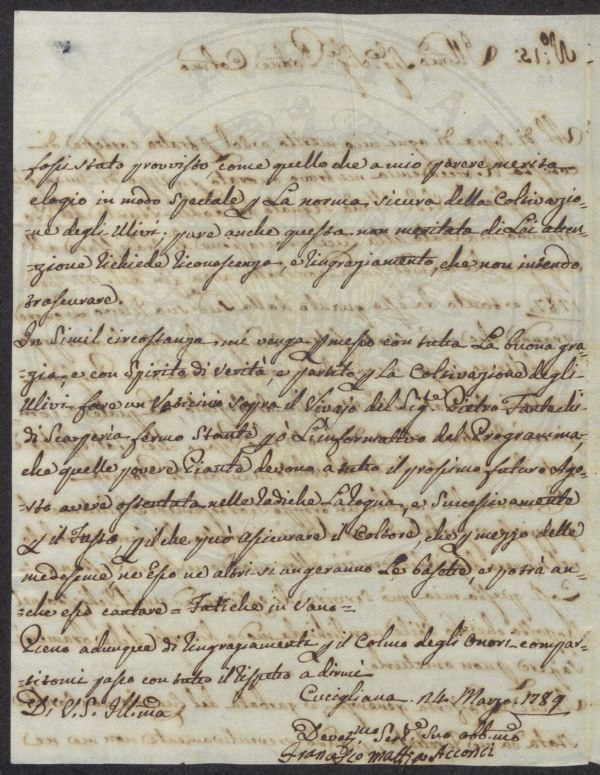 N.° 15:
fossi stato provvisto come quello che a mio parere merita
elogio in modo speciale p La norma sicura della Coltivazio-
-ne degli Ulivi; pure anche questa non meritata di Lei atten-
-zione richiede riconoscenza, e ringraziamento, che non intendo
trascurare.
In Simil circostanza mi venga pmesso con tutta La buona gra-
-zia, e con Spirito di Verità, e partito p La Coltivazione degli
Ulivi fare un Vaticinio sopra il Vivajo del Sig.re Pietro
di Scarperia fermo Stante pò L'informativo del Programma,
che quelle povere Piante devono a tutto il prossimo futuro Ago-
-sto avere ostentata nelle radiche La rogna, e Successivamente
p il Fusto, p il che può assicurare il Coltore, che p mezzo delle
medesime ne Esso ne altri si ungeranno Le basette, e potrà an-
-che esso cantare = Fatiche in Vano =
Pieno adunque di ringraziamenti p il Colmo degli Onori compar-
-titomi passo con tutto il rispetto a dirmi
Di V.S. Ill.ma
Cucigliana 24. Marzo 1789
Devo.mo Serv.e Suo obb.mo
Francesco Mattia Acconci